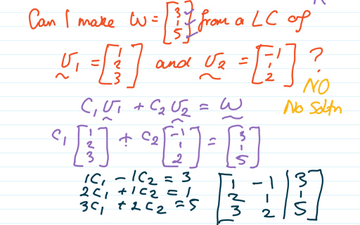 Can I make w = [3 1 5] from a LC of
v₁ = [1 2 3] and v₂ = [-1 1 2] ?
NO
No Soltn
C₁v₁ + C₂v₂ = w
C₁ [1 2 3] + C₂ [-1 1 2] = [3 1 5]
1C₁ - 1C₂ = 3
2C₁ + 1C₂ = 1
3C₁ + 2C₂ = 5
[1 -1 | 3
2 1 | 1
3 2 | 5]